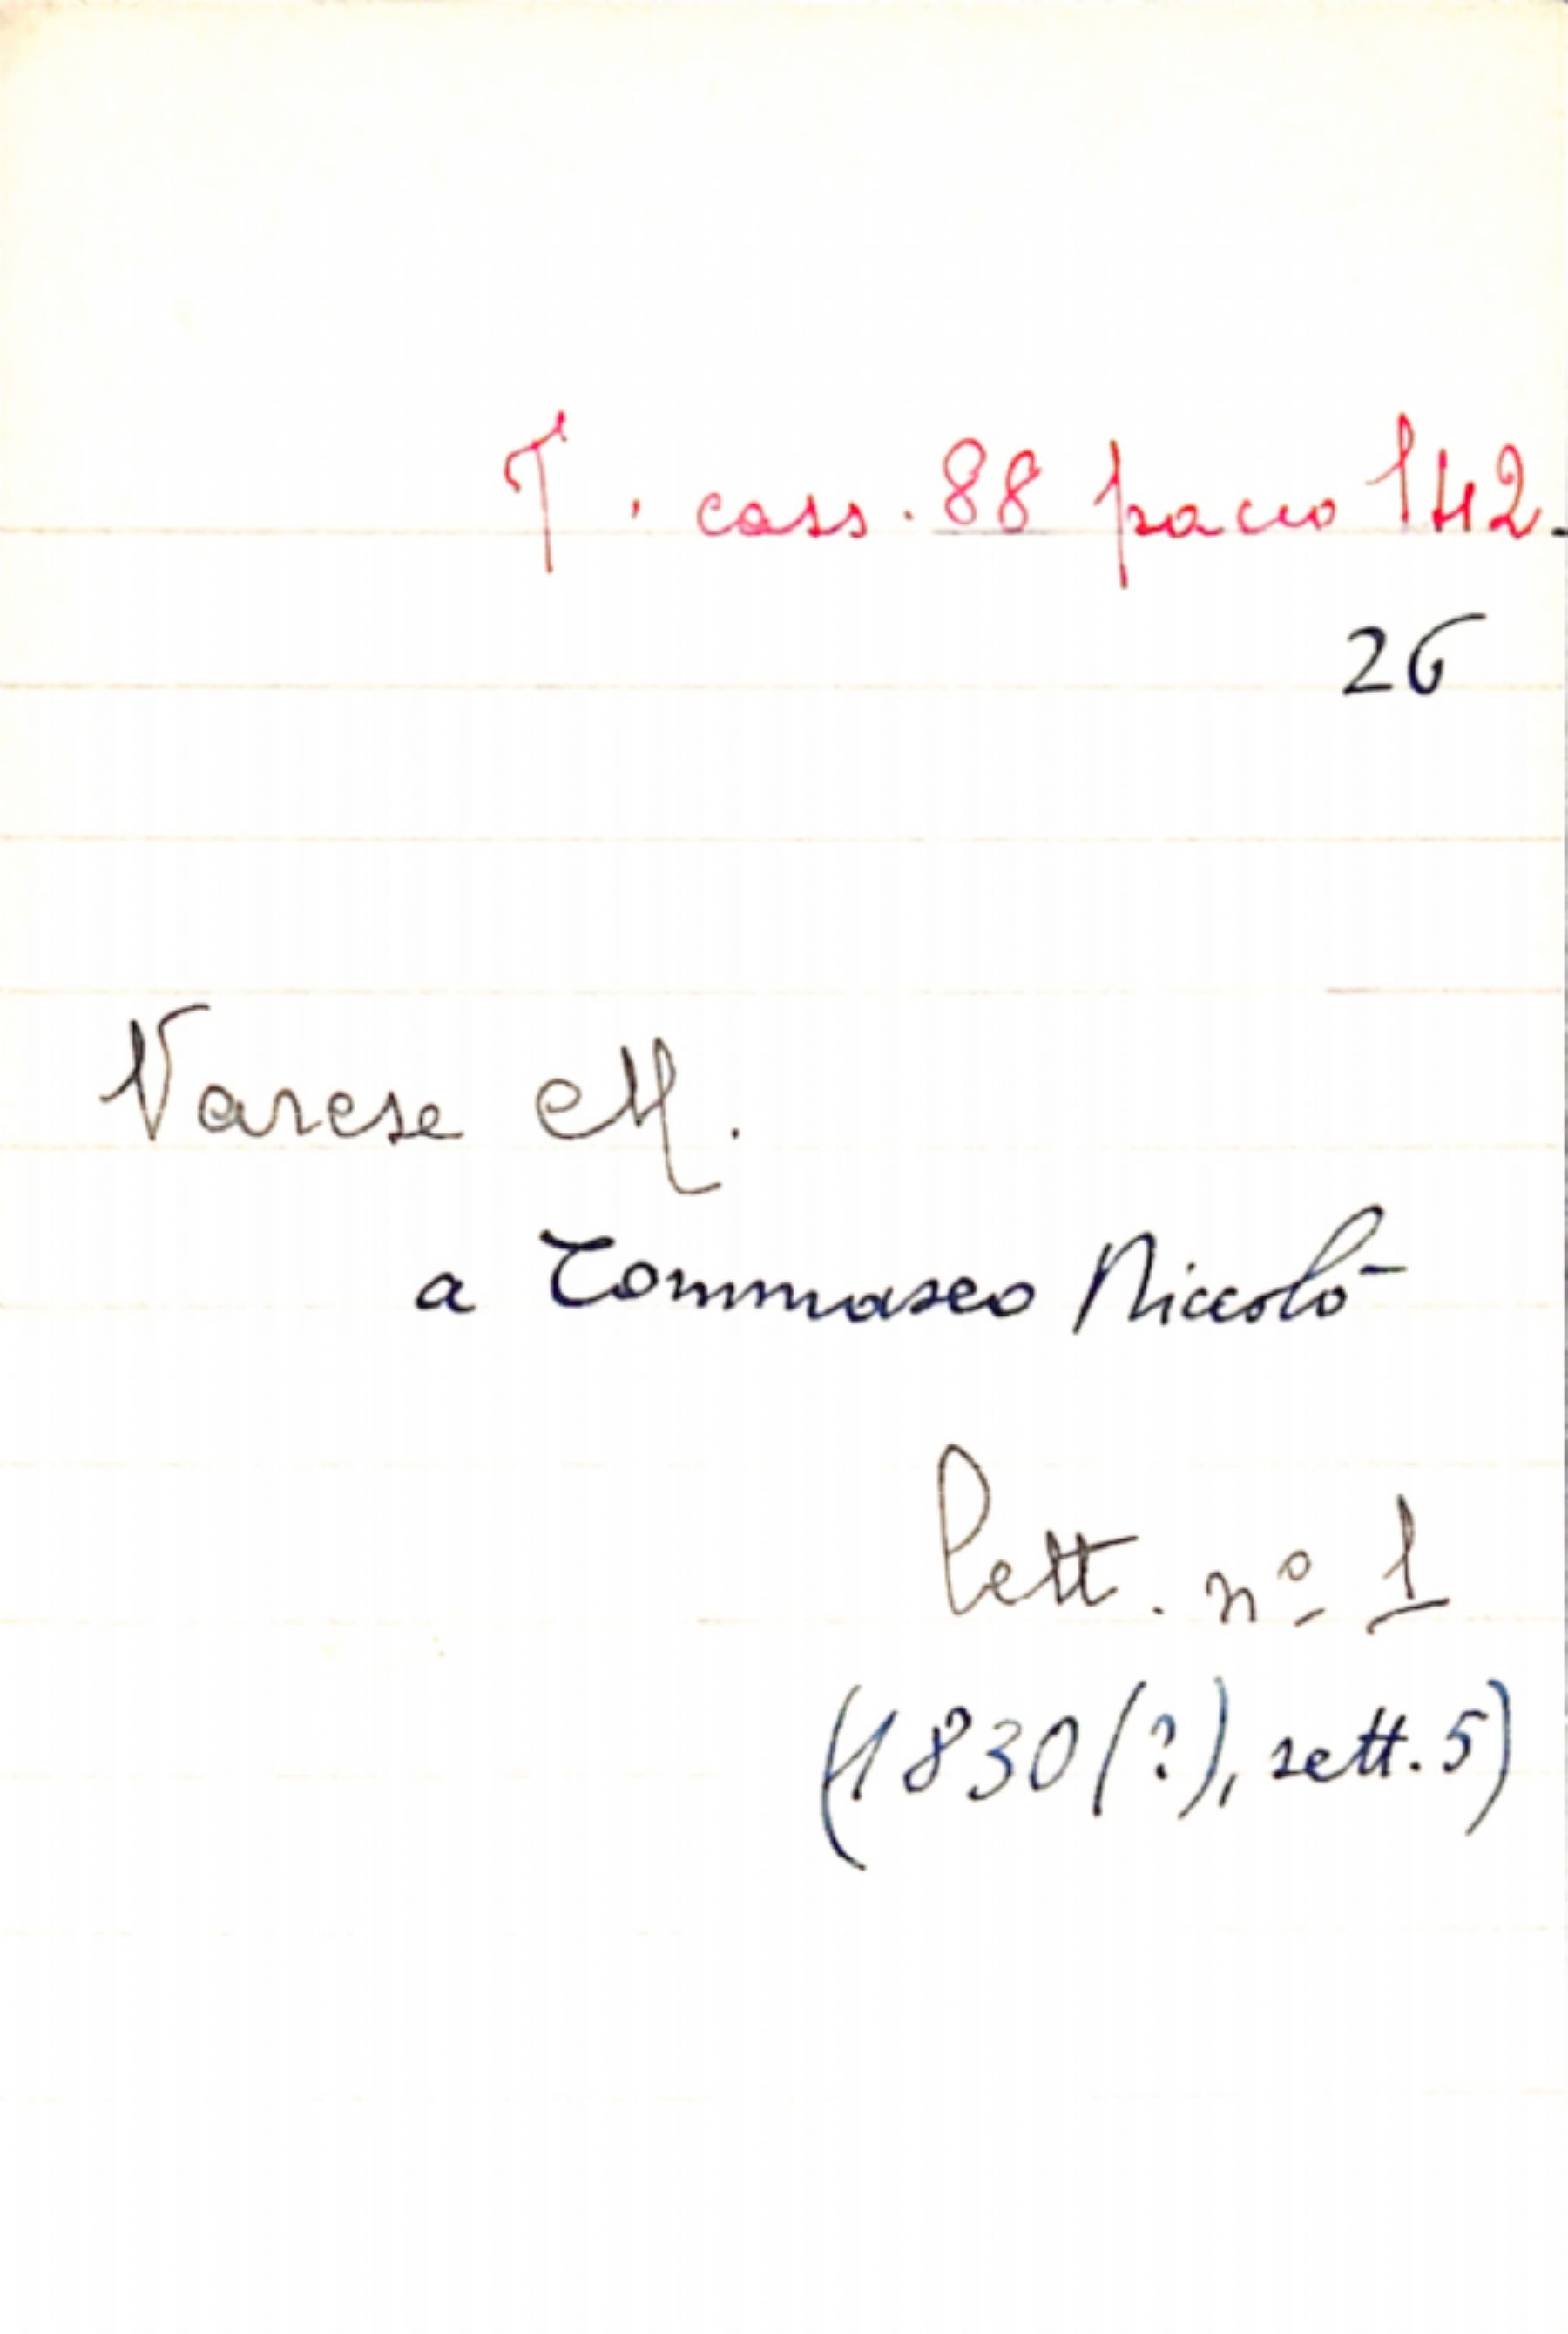 T. cass. 88 pacco 142.
26
Varese M.
a Tommaseo Niccolò
Lett. nº 1
(1830(?), sett. 5)